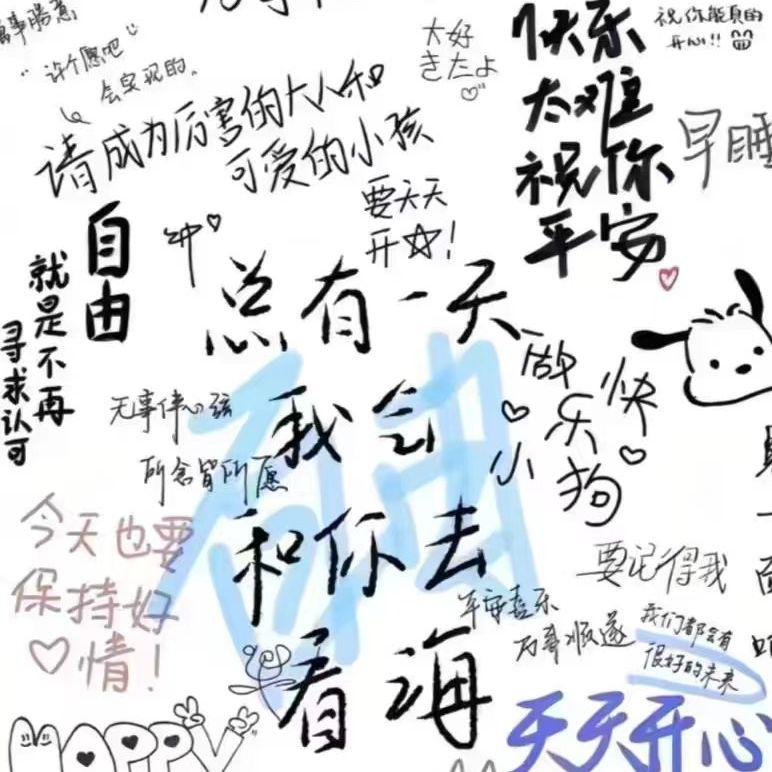 "许个愿吧"
会实现的。
请成为厉害的大人和
可爱的小孩
大好
きたよ
快乐
太难
祝你
平安
祝你能真的
开心!!
早睡
要天天
开☆!
自由
就是不再
寻求认可
总有一天
我会
和你去
看海
自由
做
快
乐
小
狗
无事伴心弦
所念皆所愿
今天也要
保持好
♡情!
要记得我
平安喜乐
万事顺遂
我们都会有
很好的未来
天天开心
HAPPY